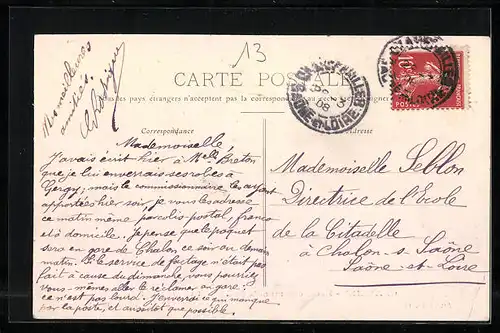 13
Mes meilleures
amitiés
CARTE POSTALE
Tous les pays étrangers n'acceptent pas la correspondance au
Correspondance
Adresse
CHAUFFAILLES
SAONE-ET-LOIRE
10
Mademoiselle
J'avais écrit hier à Melle Breton
que je lui enverrais ses robes à
Gergy; mais le commissionnaire les ayant
apportées hier soir, je vous les adresse
ce matin même par colis-postal, franco
et à domicile. Je pense que le paquet
sera en gare de Chalon ce soir ou demain
matin. Si le service de factage n'était pas
fait à cause du dimanche vous pourriez
vous-mêmes aller le réclamer en gare;
ce n'est pas lourd. J'enverrai ce qui manque
par la poste, et aussitôt que possible.
Mademoiselle Seblon
Directrice de l'École
de la Citadelle
à Chalon-s-Saône
Saône-et-Loire